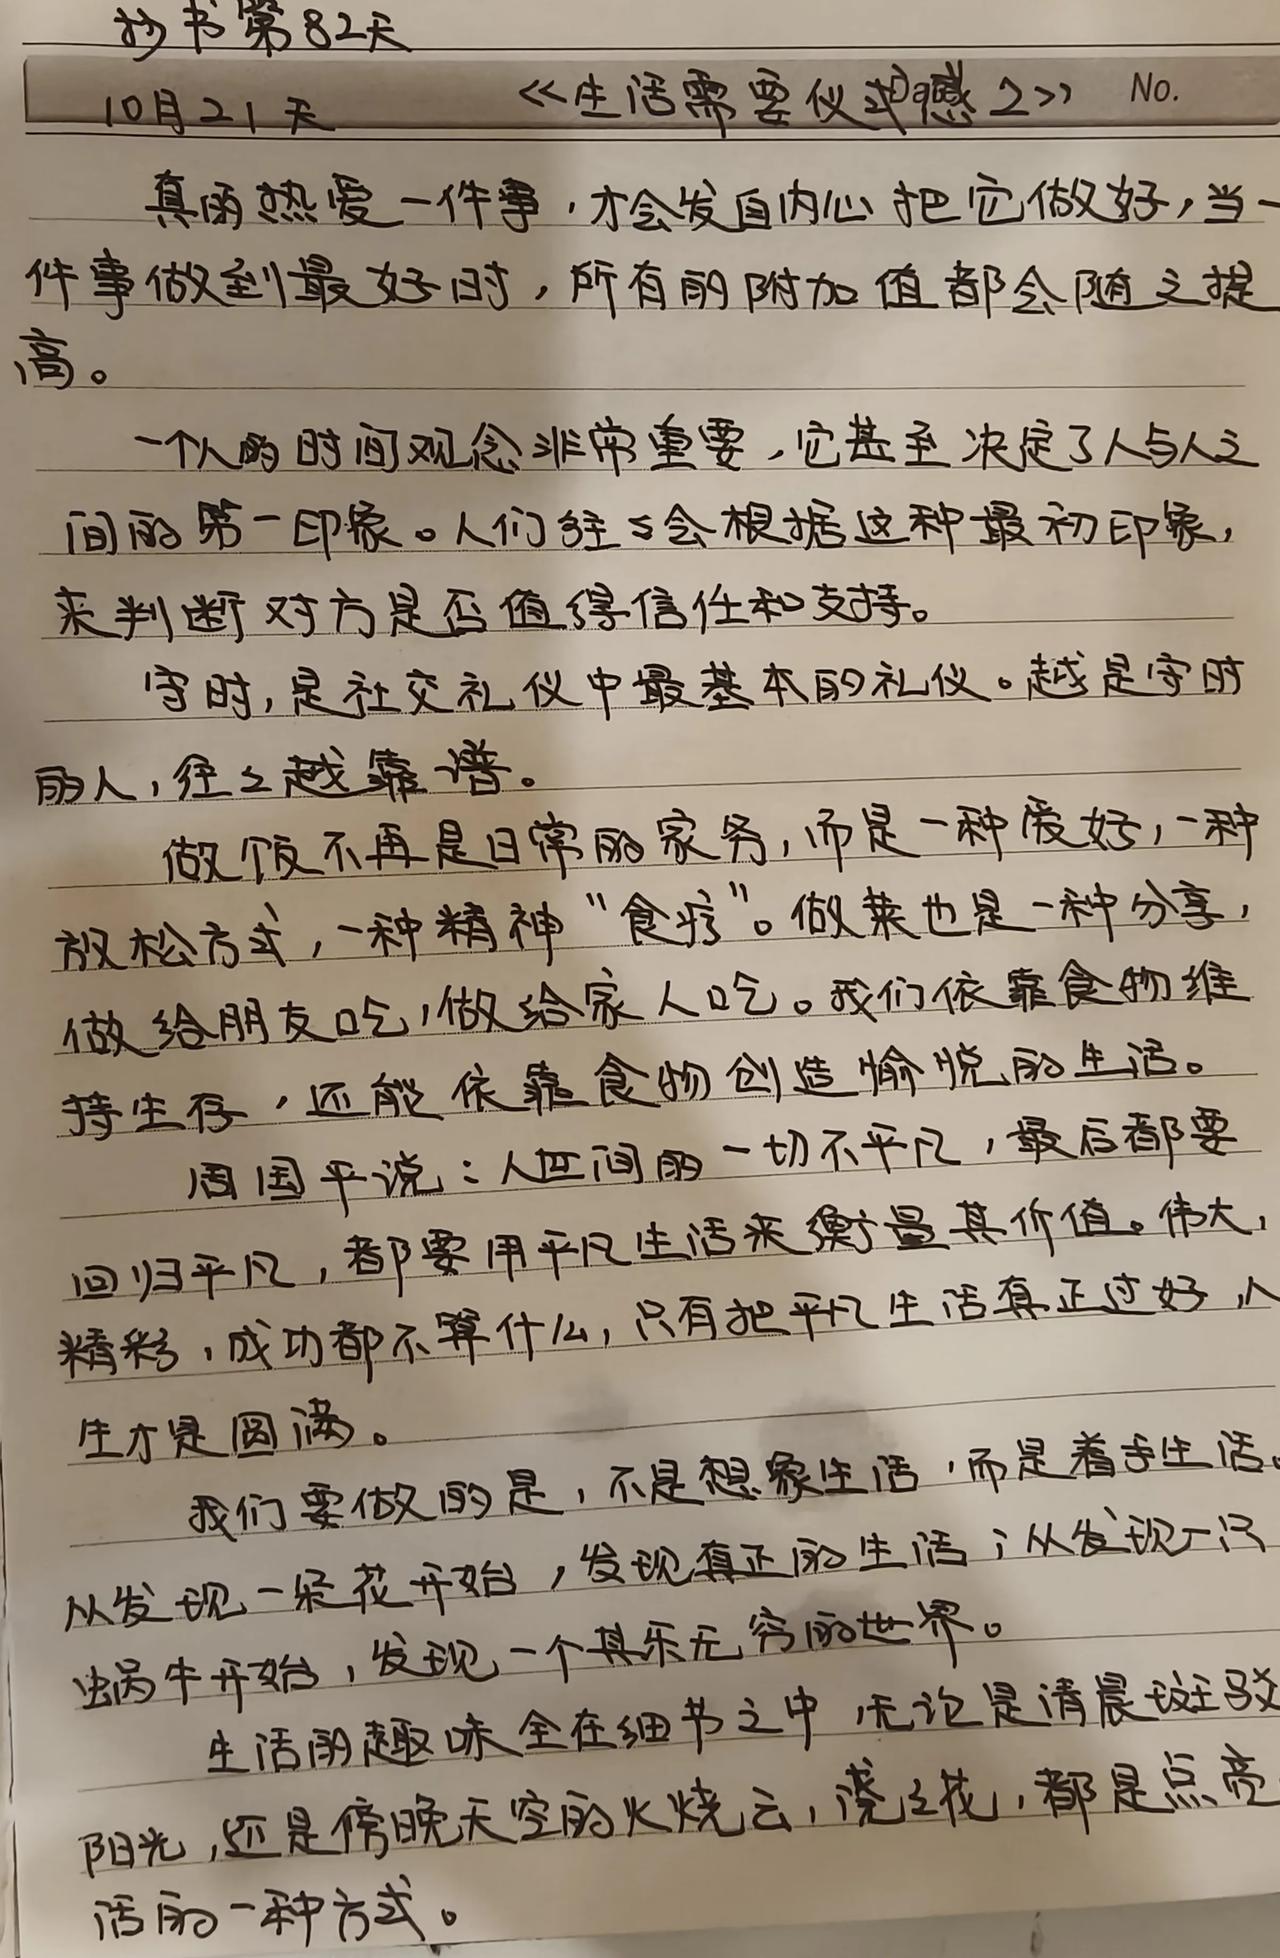 抄书第82天
10月21天 《生活需要仪式感2》 No.
真的热爱一件事，才会发自内心把它做好，当一
件事做到最好时，所有的附加值都会随之提
高。
一个人的时间观念非常重要，它甚至决定了人与人之
间的第一印象。人们往往会根据这种最初印象，
来判断对方是否值得信任和支持。
守时，是社交礼仪中最基本的礼仪。越是守时
的人，往往越靠谱。
做饭不再是日常的家务，而是一种爱好，一种
放松方式，一种精神“食疗”。做菜也是一种分享，
做给朋友吃，做给家人吃。我们依靠食物维
持生存，还能依靠食物创造愉悦的生活。
周国平说：人世间的一切不平凡，最后都要
回归平凡，都要用平凡生活来衡量其价值。伟大，
精彩，成功都不算什么，只有把平凡生活真正过好，人
生才是圆满。
我们要做的是，不是想象生活，而是着手生活。
从发现一朵花开始，发现真正的生活；从发现一只
蜗牛开始，发现一个其乐无穷的世界。
生活的趣味全在细节之中，无论是清晨斑驳
阳光，还是傍晚天空的火烧云，浇浇花，都是点亮
活的一种方式。